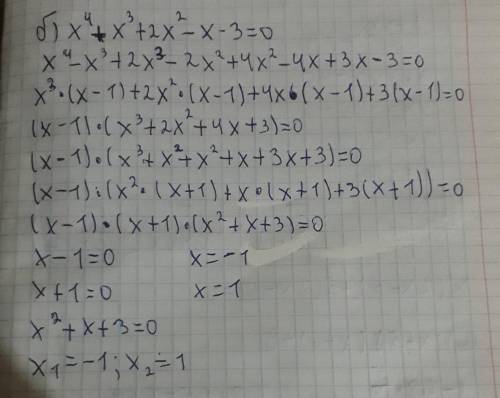 б) x⁴+x³+2x²-x-3=0
x⁴-x³+2x³-2x²+4x²-4x+3x-3=0
x³·(x-1)+2x²·(x-1)+4x·(x-1)+3(x-1)=0
(x-1)·(x³+2x²+4x+3)=0
(x-1)·(x³+x²+x²+x+3x+3)=0
(x-1)·(x²·(x+1)+x·(x+1)+3(x+1))=0
(x-1)·(x+1)·(x²+x+3)=0
x-1=0 x=-1
x+1=0 x=1
x²+x+3=0
x₁=-1; x₂=1